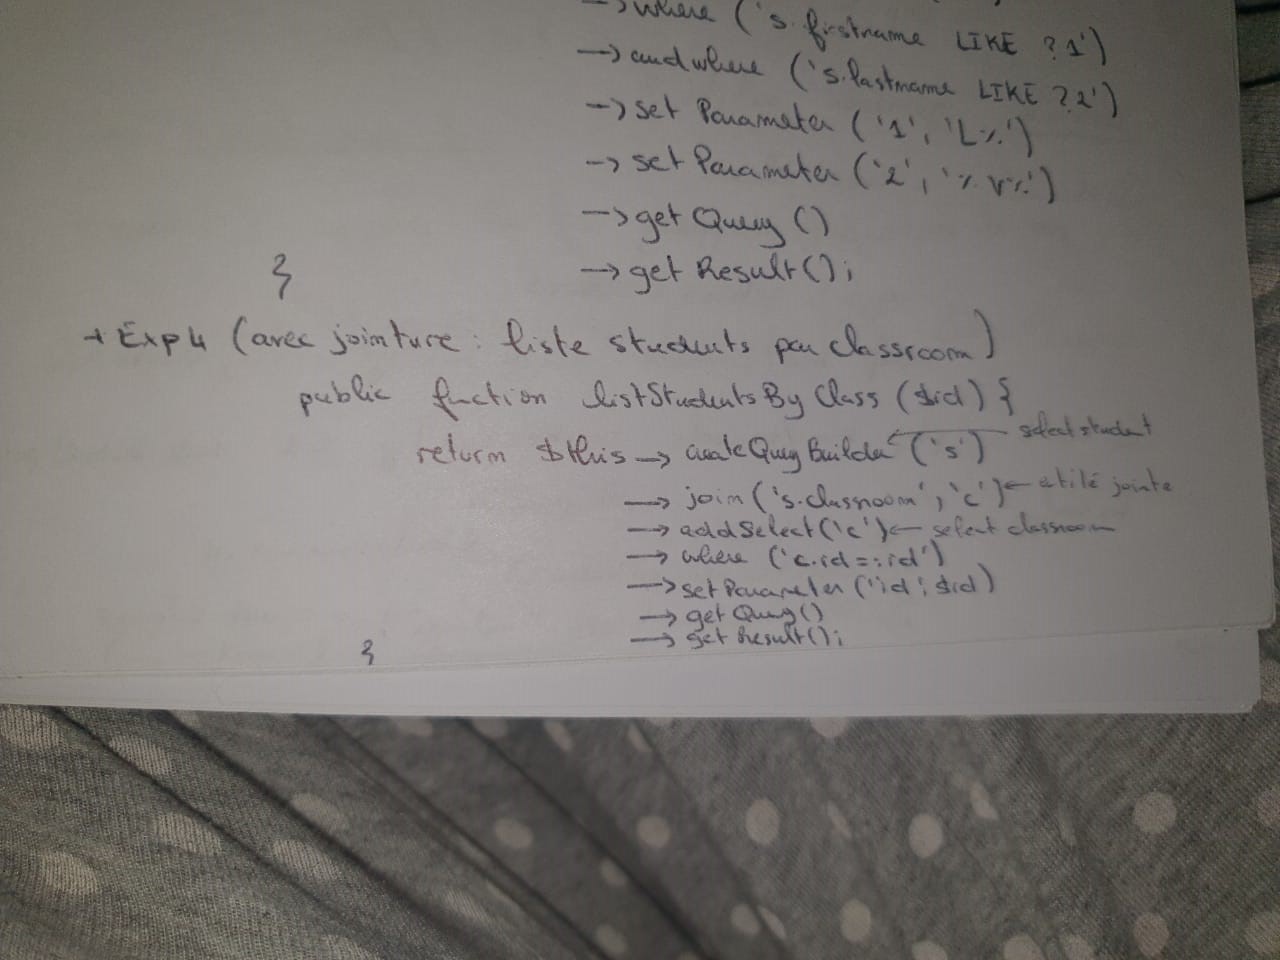 →where ('s.firstname LIKE ?1')
→andwhere ('s.lastname LIKE ?2')
→set Parameter ('1', 'L%')
→set Parameter ('2', '%v%')
→get Query ()
→get Result();
}
+ Exp4 (avec jointure : liste students par classroom)
public function listStudentsByClass ($id) {
return $this → createQueryBuilder ('s') select student
→ join ('s.classroom', 'c') ← jointe
→ addSelect ('c') ← select classroom
→ where ('c.id=:id')
→ setParameter ('id', $id)
→ get Query()
→ get Result();
}